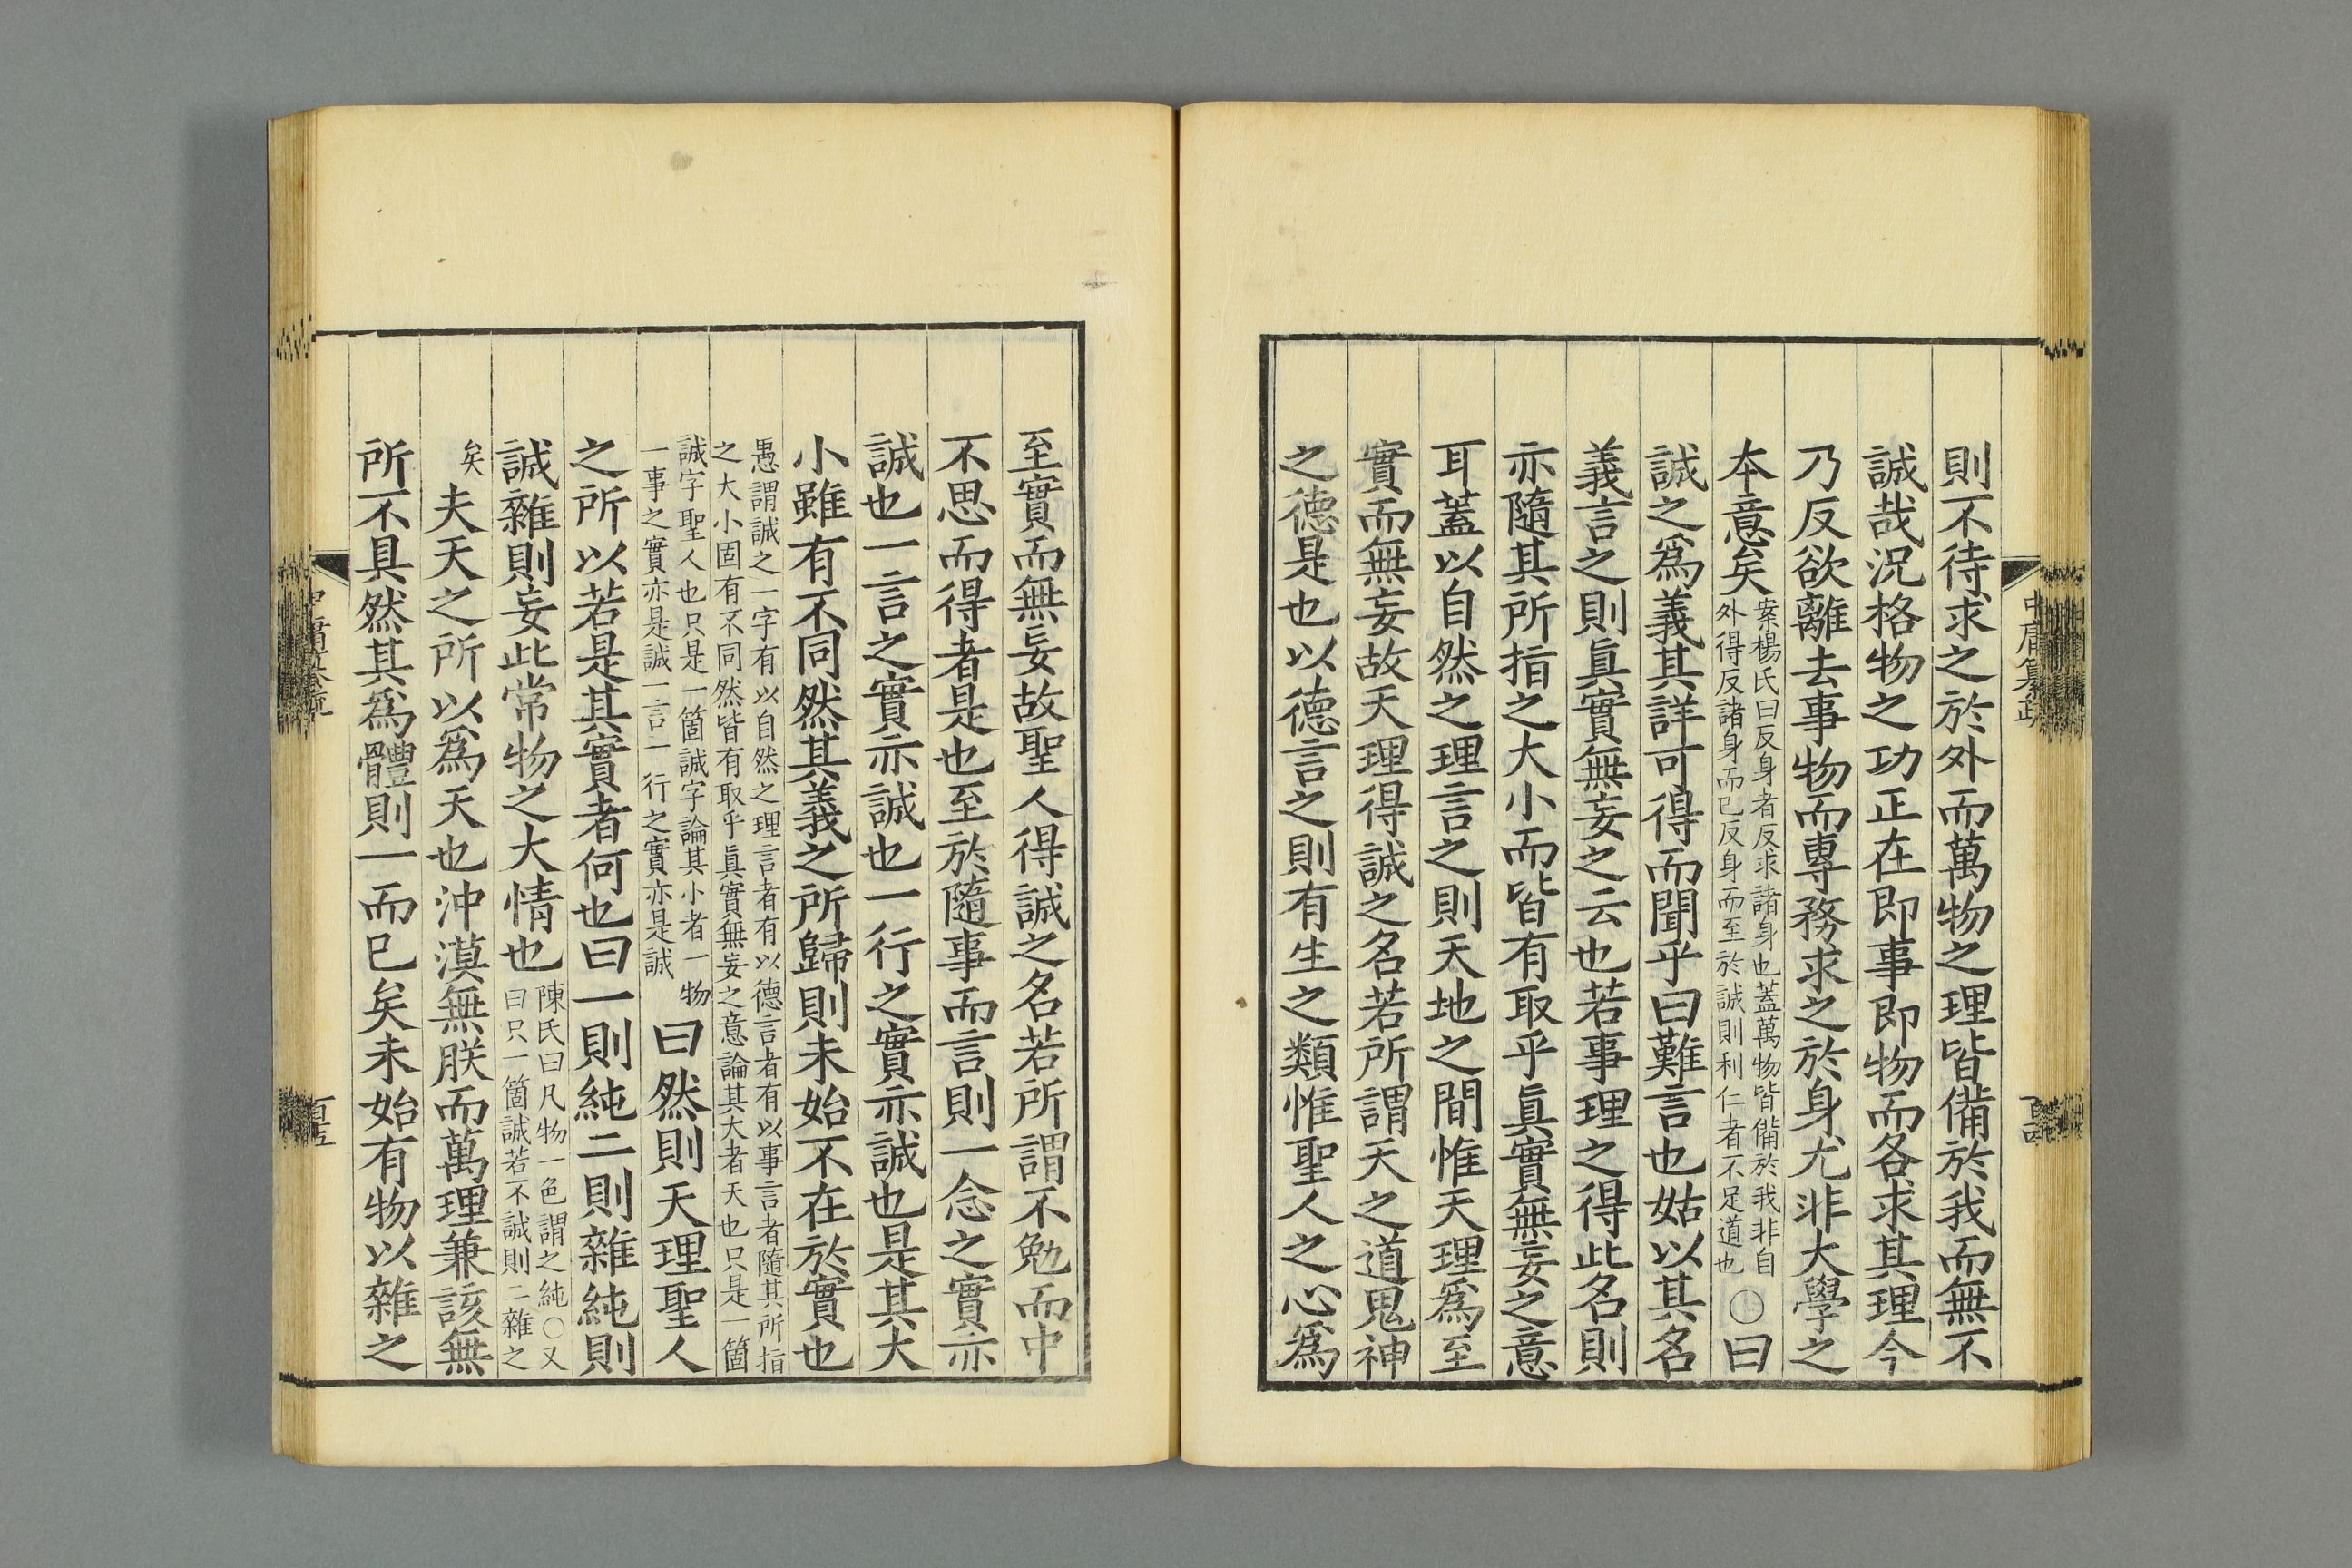 則不待求之於外而萬物之理皆備於我而無不
誠哉況格物之功正在即事即物而各求其理今
乃反欲離去事物而專務求之於身尤非大學之
本意矣
案楊氏曰反身者反求諸身也蓋萬物皆備於我非自
外得反諸身而已反身而至於誠則利仁者不足道也
○曰
誠之爲義其詳可得而聞乎曰難言也姑以其名
義言之則眞實無妄之云也若事理之得此名則
亦隨其所指之大小而皆有取乎眞實無妄之意
耳蓋以自然之理言之則天地之間惟天理爲至
實而無妄故天理得誠之名若所謂天之道鬼神
之德是也以德言之則有生之類惟聖人之心爲
中庸纂疏
至實而無妄故聖人得誠之名若所謂不勉而中
不思而得者是也至於隨事而言則一念之實亦
誠也一言之實亦誠也一行之實亦誠也是其大
小雖有不同然其義之所歸則未始不在於實也
愚謂誠之一字有以自然之理言者有以德言者有以事言者隨其所指
之大小固有不同然皆有取乎眞實無妄之意論其大者天也只是一箇
誠字聖人也只是一箇誠字論其小者一物
一事之實亦是誠一言一行之實亦是誠
曰然則天理聖人
之所以若是其實者何也曰一則純二則雜純則
誠雜則妄此常物之大情也
陳氏曰凡物一色謂之純○又
曰只一箇誠若不誠則二雜之
矣
夫天之所以爲天也沖漠無朕而萬理兼該無
所不具然其爲體則一而已矣未始有物以雜之